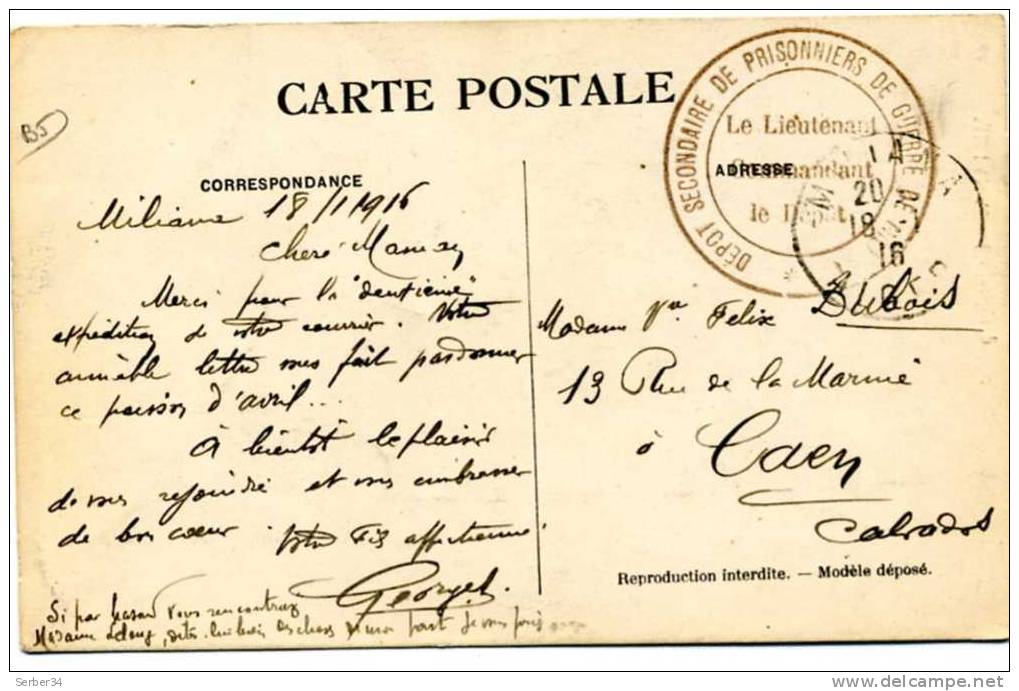 B5
CARTE POSTALE
DÉPOT SECONDAIRE DE PRISONNIERS DE GUERRE DE
Le Lieutenant
Commandant
le Dépôt
20
18
16
CORRESPONDANCE
ADRESSE
Miliana 18/1/1916
Chere Maman
Merci pour la "deuxième"
expédition de votre courrier. Votre
aimable lettre me fait pardonner
ce poisson d'avril...
à bientôt le plaisir
de vous rejoindre et vous embrasser
de bon cœur. Votre Fils affectionné
Georges.
Si par hasard vous rencontrez
Madame dites lui bien des choses de ma part je vous prie
Madame Vve Felix Dubois
13 Rue de la Marine
à Caen
Calvados
Reproduction interdite. — Modèle déposé.
Serber34
www.delcampe.net